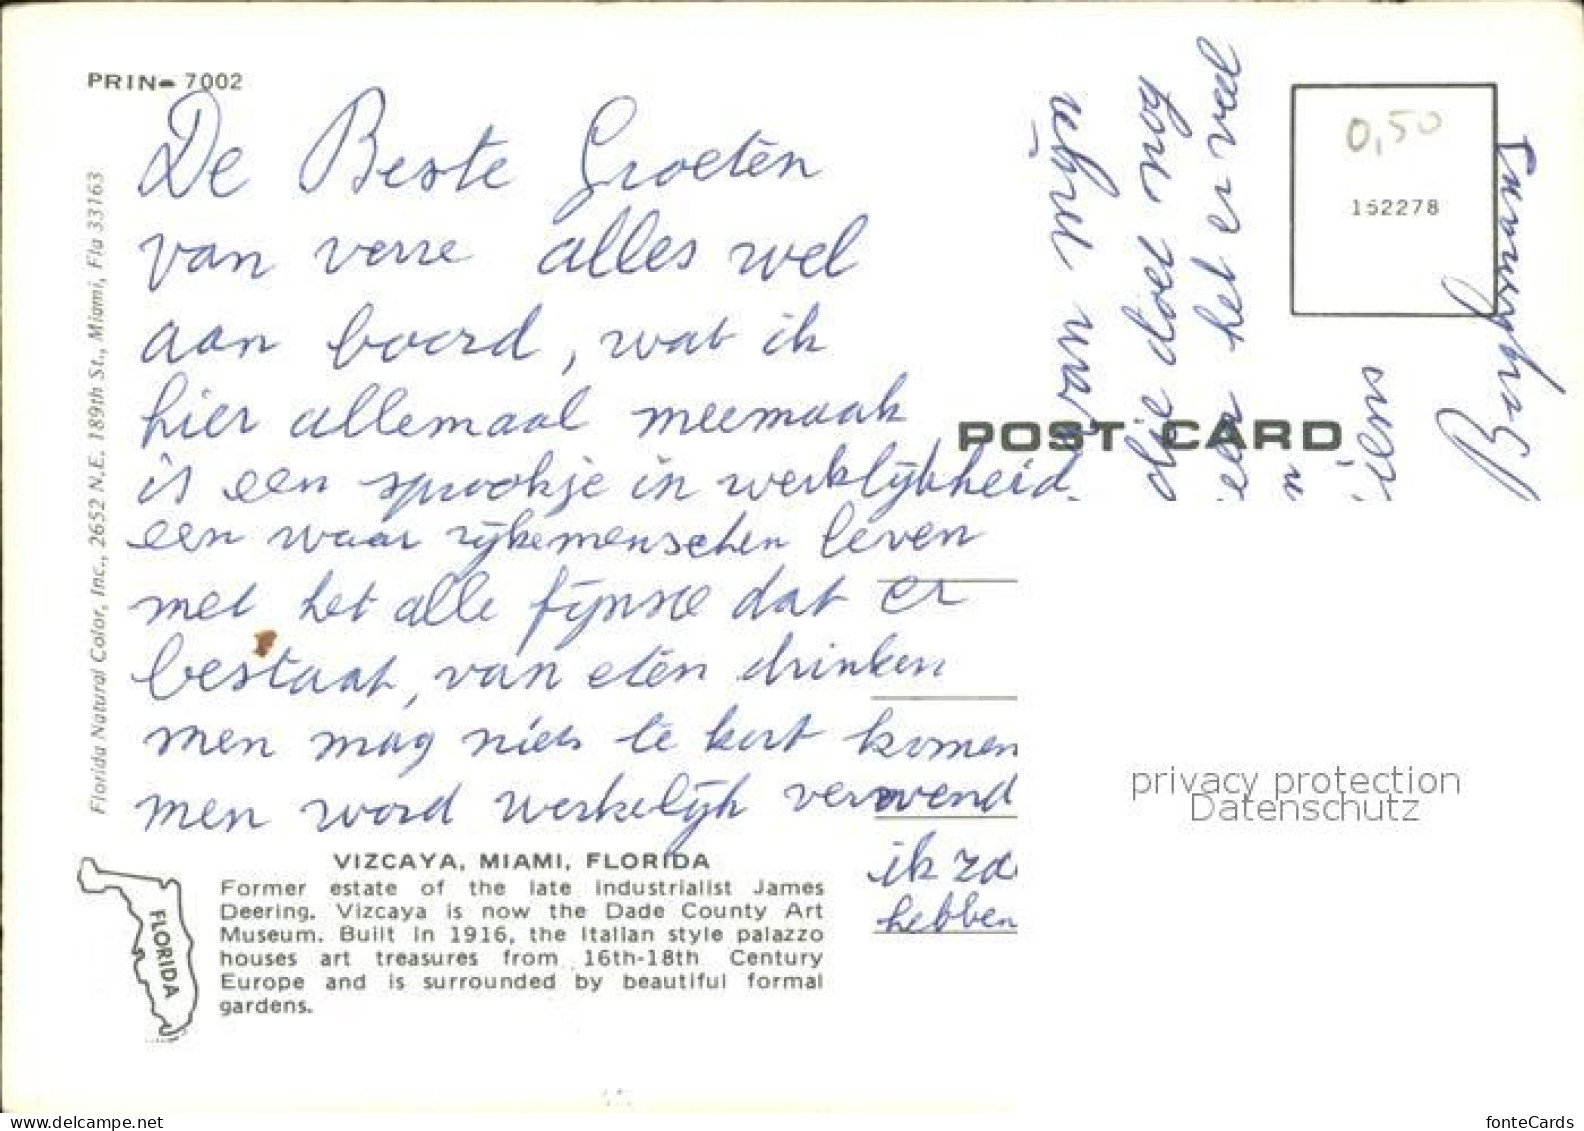 PRIN- 7002
De Beste Groeten
van verre alles wel
aan boord, wat ik
hier allemaal meemaak
is een sprookje in werklijkheid.
een waar rijkemenschen leven
met het alle fijnste dat er
bestaat, van eten drinken
men mag niets te kort komen
men word werkelijk verwend
ik za
hebben
van mijn
die doet nog
het er veel
POST CARD
0,50
152278
Florida Natural Color, Inc., 2652 N.E. 189th St., Miami, Fla 33163
VIZCAYA, MIAMI, FLORIDA
Former estate of the late industrialist James
Deering. Vizcaya is now the Dade County Art
Museum. Built in 1916, the Italian style palazzo
houses art treasures from 16th-18th Century
Europe and is surrounded by beautiful formal
gardens.
FLORIDA
privacy protection
Datenschutz
https://www.delcampe.net
fonteCards